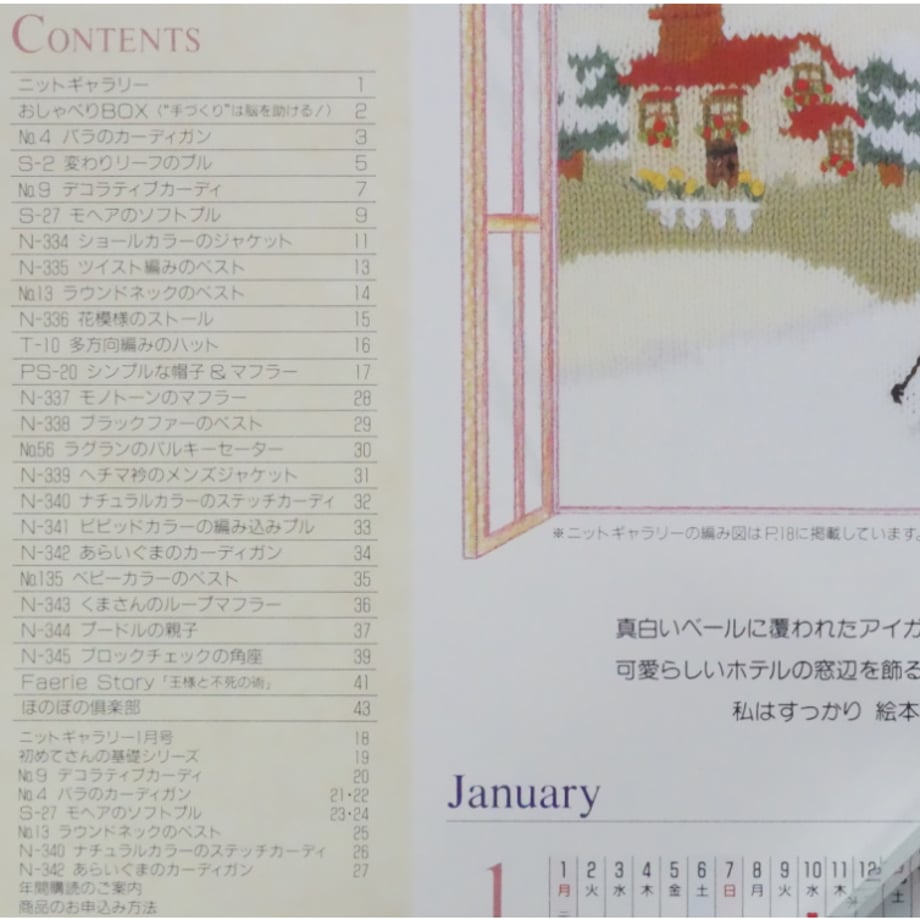 CONTENTS
ニットギャラリー 1
おしゃべりBOX (“手づくり”は脳を助ける!) 2
No.4 バラのカーディガン 3
S-2 変わりリーフのプル 5
No.9 デコラティブカーディ 7
S-27 モヘアのソフトプル 9
N-334 ショールカラーのジャケット 11
N-335 ツイスト編みのベスト 13
No.13 ラウンドネックのベスト 14
N-336 花模様のストール 15
T-10 多方向編みのハット 16
PS-20 シンプルな帽子&マフラー 17
N-337 モノトーンのマフラー 28
N-338 ブラックファーのベスト 29
No.56 ラグランのバルキーセーター 30
N-339 ヘチマ衿のメンズジャケット 31
N-340 ナチュラルカラーのステッチカーディ 32
N-341 ビビッドカラーの編み込みプル 33
N-342 あらいぐまのカーディガン 34
No.135 ベビーカラーのベスト 35
N-343 くまさんのループマフラー 36
N-344 プードルの親子 37
N-345 ブロックチェックの角座 39
Faerie Story「王様と不死の術」 41
ほのぼの倶楽部 43
ニットギャラリー1月号 18
初めてさんの基礎シリーズ 19
No.9 デコラティブカーディ 20
No.4 バラのカーディガン 21・22
S-27 モヘアのソフトプル 23・24
No.13 ラウンドネックのベスト 25
N-340 ナチュラルカラーのステッチカーディ 26
N-342 あらいぐまのカーディガン 27
年間購読のご案内
商品のお申込み方法
※ニットギャラリーの編み図はP.18に掲載しています。
真白いベールに覆われたアイガ
可愛らしいホテルの窓辺を飾る
私はすっかり 絵本
January
1
1 2 3 4 5 6 7 8 9 10 11 12
月 火 水 木 金 土 日 月 火 水 木 金 土